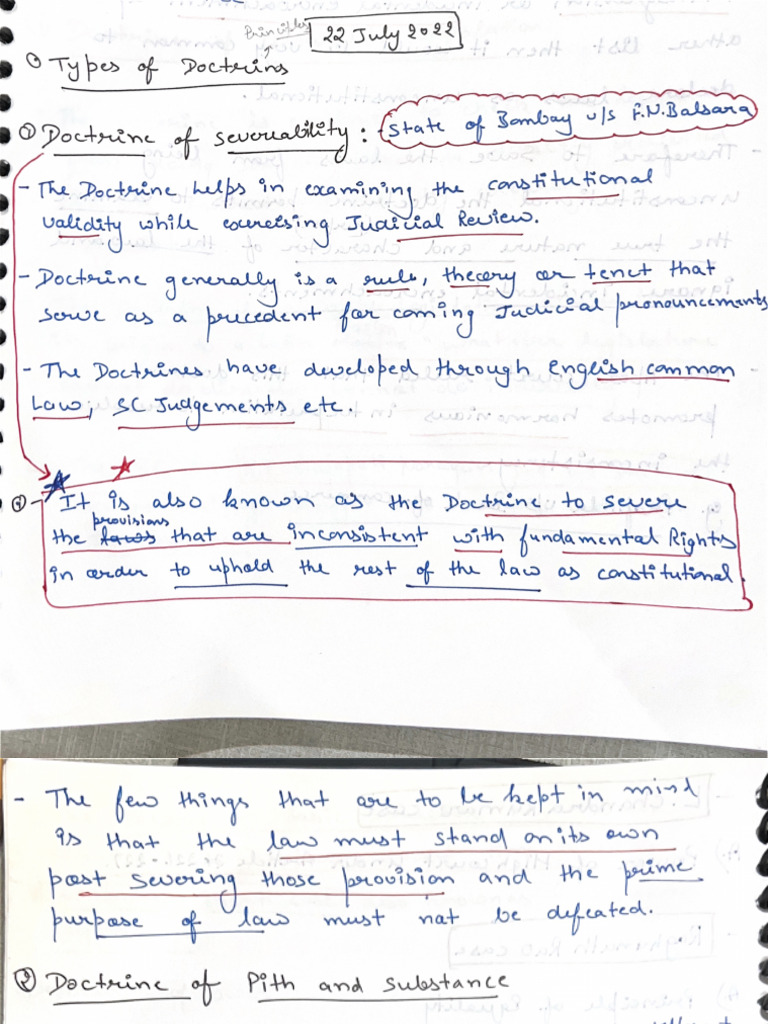 Principles
22 July 2022
Types of Doctrins
① Doctrine of severeability : - State of Bombay v/s F.N. Balsara
- The Doctrine helps in examining the constitutional
validity while exercising Judicial Review.
- Doctrine generally is a rule, theory or tenet that
serve as a precedent for coming Judicial pronouncements
- The Doctrines have developed through english common
Law, SC Judgements etc.
- It is also known as the Doctrine to severe
provisions
the laws that are inconsistent with fundamental Rights
in order to uphold the rest of the law as constitutional.
- The few things that are to be kept in mind
is that the law must stand on its own
post severing those provision and the prime
purpose of law must not be defeated.
② Doctrine of Pith and Substance